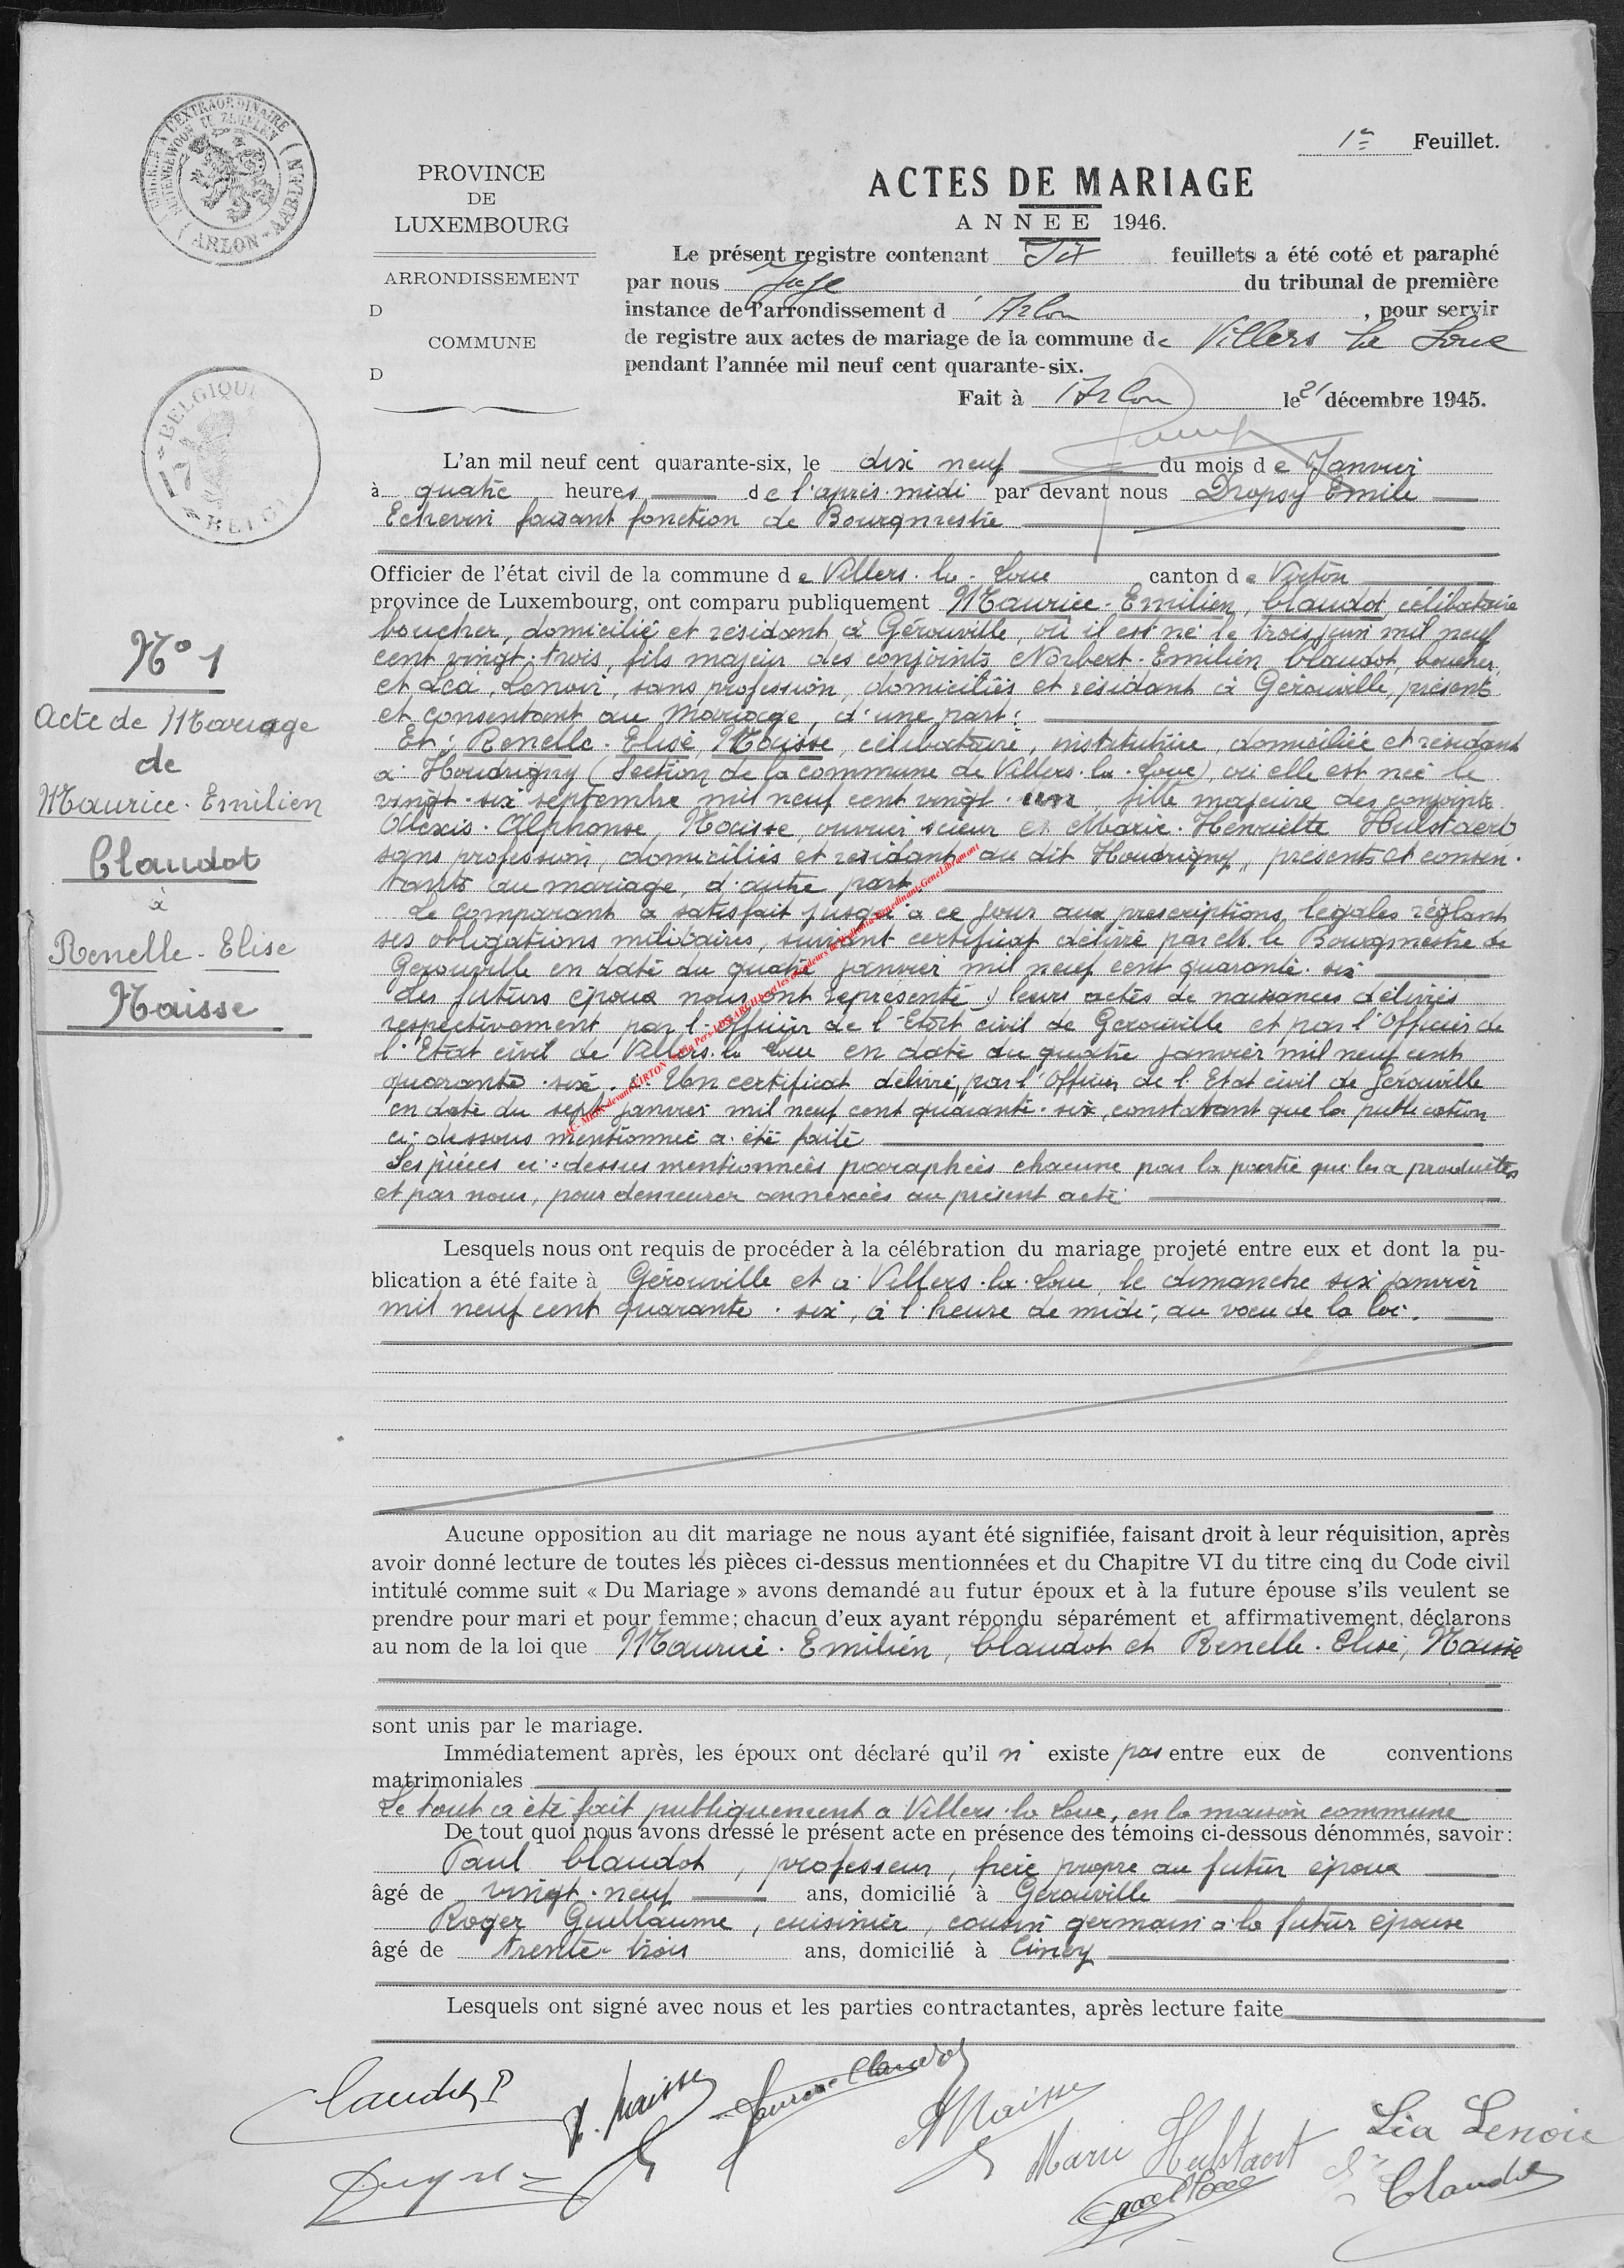 1er Feuillet.
TIMBRE A L'EXTRAORDINAIRE
BUITENGEWOON TE ZEGELEN
ARLON - AARLEN
PROVINCE
DE
LUXEMBOURG
ARRONDISSEMENT
D
COMMUNE
D
BELGIQUE
17
BELGI
ACTES DE MARIAGE
ANNEE 1946.
Le présent registre contenant Six feuillets a été coté et paraphé
par nous Juge du tribunal de première
instance de l'arrondissement d'Arlon, pour servir
de registre aux actes de mariage de la commune de Villers la Loue
pendant l'année mil neuf cent quarante-six.
Fait à Arlon le 21 décembre 1945.
L'an mil neuf cent quarante-six, le dix neuf du mois de Janvier
à quatre heures de l'après-midi par devant nous Dropsy Emile
Echevin faisant fonction de Bourgmestre
Officier de l'état civil de la commune de Villers-la-Loue canton de Virton
province de Luxembourg, ont comparu publiquement Maurice-Emilien, Claudot, célibataire
boucher, domicilié et résidant à Gérouville, où il est né le trois juin mil neuf
cent vingt-trois, fils majeur des conjoints Norbert-Emilien Claudot, boucher,
et Léa, Lenoir, sans profession, domiciliés et résidant à Gérouville, présents
et consentant au mariage, d'une part;
Et: Renelle-Elise, Maisse, célibataire, institutrice, domiciliée et résidant
à Houdrigny (Section de la commune de Villers-la-Loue), où elle est née le
vingt-six septembre mil neuf cent vingt-un, fille majeure des conjoints
Alexis-Alphonse, Maisse, ouvrier scieur et Marie-Henriette Hulstaert
sans profession, domiciliés et résidant au dit Houdrigny, présents et consen-
tants au mariage, d'autre part
Le comparant a satisfait jusqu'à ce jour aux prescriptions légales réglant
ses obligations militaires, suivant certificat délivré par M. le Bourgmestre de
Gérouville en date du quatre janvier mil neuf cent quarante-six
Les futurs époux nous ont représenté leurs actes de naissances délivrés
respectivement par l'officier de l'Etat civil de Gérouville et par l'Officier de
l'Etat civil de Villers-la-Loue en date du quatre janvier mil neuf cent
quarante-six. Un certificat délivré par l'officier de l'Etat civil de Gérouville
en date du sept janvier mil neuf cent quarante-six, constatant que la publication
ci-dessous mentionnée a été faite
Les pièces ci-dessus mentionnées paraphées chacune par la partie qui les a produites
et par nous, pour demeurer annexées au présent acte
Lesquels nous ont requis de procéder à la célébration du mariage projeté entre eux et dont la pu-
blication a été faite à Gérouville et à Villers-la-Loue, le dimanche six janvier
mil neuf cent quarante-six, à l'heure de midi, au vœu de la loi.
Aucune opposition au dit mariage ne nous ayant été signifiée, faisant droit à leur réquisition, après
avoir donné lecture de toutes les pièces ci-dessus mentionnées et du Chapitre VI du titre cinq du Code civil
intitulé comme suit « Du Mariage » avons demandé au futur époux et à la future épouse s'ils veulent se
prendre pour mari et pour femme; chacun d'eux ayant répondu séparément et affirmativement, déclarons
au nom de la loi que Maurice-Emilien, Claudot et Renelle-Elise, Maisse
sont unis par le mariage.
Immédiatement après, les époux ont déclaré qu'il n'existe pas entre eux de conventions
matrimoniales
Le tout a été fait publiquement à Villers-la-Loue, en la maison commune
De tout quoi nous avons dressé le présent acte en présence des témoins ci-dessous dénommés, savoir:
Paul Claudot, professeur, frère propre au futur époux
âgé de vingt-neuf ans, domicilié à Gérouville
Roger Guillaume, cuisinier, cousin germain à la futur épouse
âgé de trente-trois ans, domicilié à Ciney
Lesquels ont signé avec nous et les parties contractantes, après lecture faite
No 1
Acte de Mariage
de
Maurice-Emilien
Claudot
à
Renelle-Elise
Maisse
Claudot P
R. Maisse
Maurice Claudot
A Maisse
Marie Hulstaert
Léa Lenoir
Claudot